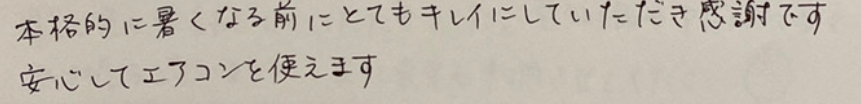 本格的に暑くなる前にとてもキレイにしていただき感謝です
安心してエアコンを使えます